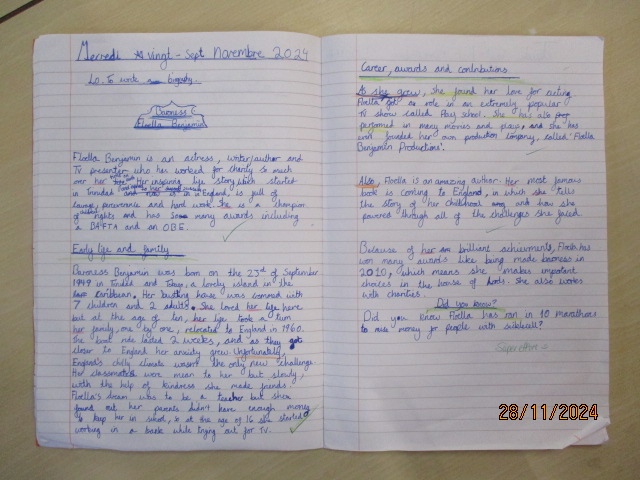 Mercredi vingt-Sept Novembre 2024
L.O. To write biography.
Baroness
Floella Benjamin
Floella Benjamin is an actress, writer/author and
TV presenter who worked for charity so much
over her Her inspiring life story which started
in Trinidad and now is in England, is full of
courage, perseverance and hard work. She is a champion
of rights and has so many awards including
a BAFTA and an OBE.
Early life and family
Baroness Benjamin was born on the 23rd of September
1949 in Trinidad and Tobago, a lovely island in the
Caribbean. Her bustling house was crammed with
7 children and 2 adults. She loved her life here
but at the age of ten, her life took a turn
her family, one by one, relocated to England in 1960.
The boat ride lasted 2 weeks, and as they got
closer to England her anxiety grew. Unfortunately,
England's chilly climate wasn't the only new challenge.
Her classmates were mean to her but slowly
with the help of kindness she made friends
Floella's dream was to be a teacher but she
found out her parents didn't have enough money
to keep her in school, so at the age of 16 she started
working in a bank while trying out for TV.
Career, awards and contributions
As she grew, She found her love for acting
Floella got a role in an extremely popular
TV show called Play school. She has also
performed in many movies and plays, and she has
even founded her own production company, called 'Floella
Benjamin Productions'.
Also, Floella is an amazing author. Her most famous
book is coming to England, in which she tells
the story of her childhood and how she
powered through all of the challenges she faced.
Because of her brilliant achievements, Floella has
won many awards like being made baroness in
2010, which means she makes important
choices in the house of lords. She also works
with charities.
Did you know?
Did you know Floella has ran in 10 marathons
to raise money for people with sicklecell?
28/11/2024